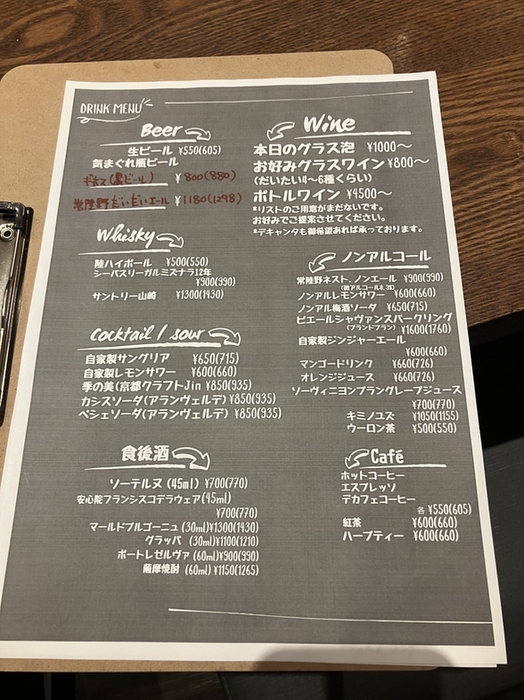 DRINK MENU
Beer
生ビール ¥550(605)
気まぐれ瓶ビール
(黒ビール) ¥800(880)
常陸野だいだいエール ¥1180(1298)
Whisky
陸ハイボール ¥500(550)
シーバスリーガルミズナラ12年
¥900(990)
サントリー山崎 ¥1300(1430)
Cocktail / sour
自家製サングリア ¥650(715)
自家製レモンサワー ¥600(660)
季の美(京都クラフトJin ¥850(935)
カシスソーダ(アランヴェルデ) ¥850(935)
ペシェソーダ(アランヴェルデ) ¥850(935)
食後酒
ソーテルヌ (45ml) ¥700(770)
安心院フランシスコデラウェア(45ml)
¥700(770)
マールドブルゴーニュ (30ml)¥1300(1430)
グラッパ (30ml)¥1100(1210)
ポートレゼルヴァ (60ml)¥900(990)
薩摩焼酎 (60ml)¥1150(1265)
Wine
本日のグラス泡 ¥1000〜
お好みグラスワイン¥800〜
(だいたい4〜6種くらい)
ボトルワイン ¥4500〜
*リストのご用意がまだないです。
お好みでご提案させてください。
*デキャンタも御希望あれば承っております。
ノンアルコール
常陸野ネスト、ノンエール ¥900(990)
(微アルコール0.3%)
ノンアルレモンサワー ¥600(660)
ノンアル梅酒ソーダ ¥650(715)
ピエールシャヴァンスパークリング
(ブランドブラン) ¥1600(1760)
自家製ジンジャーエール
¥600(660)
マンゴードリンク ¥660(726)
オレンジジュース ¥660(726)
ソーヴィニヨンブラングレープジュース
¥700(770)
キミノユズ ¥1050(1155)
ウーロン茶 ¥500(550)
Café
ホットコーヒー
エスプレッソ
デカフェコーヒー
各 ¥550(605)
紅茶 ¥600(660)
ハーブティー ¥600(660)